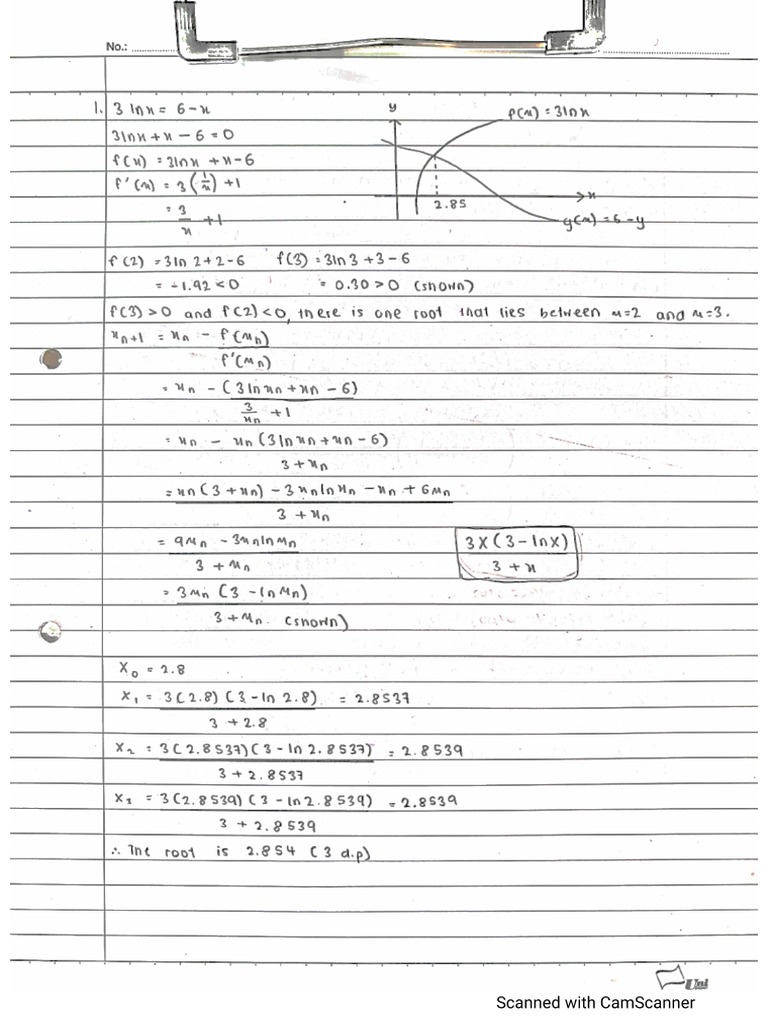 No.:
1. 3 ln x = 6 - x
y
p(x) = 3 ln x
3 ln x + x - 6 = 0
f(x) = 3 ln x + x - 6
f'(x) = 3 (1/x) + 1
x
2.85
= 3/x + 1
g(x) = 6 - y
f(2) = 3 ln 2 + 2 - 6 f(3) = 3 ln 3 + 3 - 6
= -1.92 < 0 = 0.30 > 0 (shown)
f(3) > 0 and f(2) < 0, there is one root that lies between x = 2 and x = 3.
x_{n+1} = x_n - f(x_n) / f'(x_n)
= x_n - (3 ln x_n + x_n - 6) / (3/x_n + 1)
= x_n - x_n (3 ln x_n + x_n - 6) / (3 + x_n)
= (x_n (3 + x_n) - 3x_n ln x_n - x_n + 6x_n) / (3 + x_n)
= (9x_n - 3x_n ln x_n) / (3 + x_n)
3x (3 - ln x) / (3 + x)
= 3x_n (3 - ln x_n) / (3 + x_n) (shown)
x_0 = 2.8
x_1 = 3(2.8)(3 - ln 2.8) / (3 + 2.8) = 2.8537
x_2 = 3(2.8537)(3 - ln 2.8537) / (3 + 2.8537) = 2.8539
x_3 = 3(2.8539)(3 - ln 2.8539) / (3 + 2.8539) = 2.8539
∴ The root is 2.854 (3 d.p)
Uni
Scanned with CamScanner